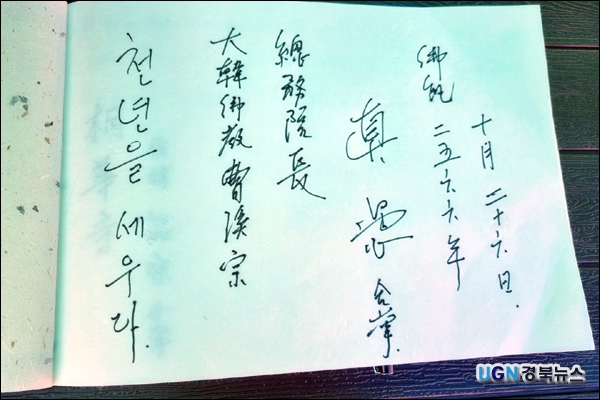 천년을 세우다.
大韓佛敎曹溪宗
總務院長
眞愚 合掌.
佛紀 二五六六年
十月 二十六日.
UGN경북뉴스